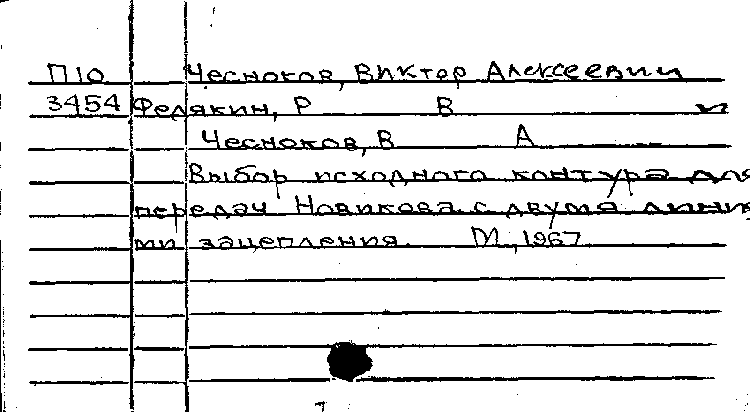 П10 Чесноков, Виктор Алексеевич
3454 Федякин, Р В и
Чесноков, В А
Выбор исходного контура для
передач Новикова с двумя линия
ми зацепления. М., 1967